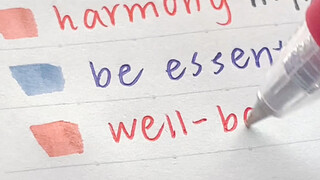 harmony
be essen
well-b